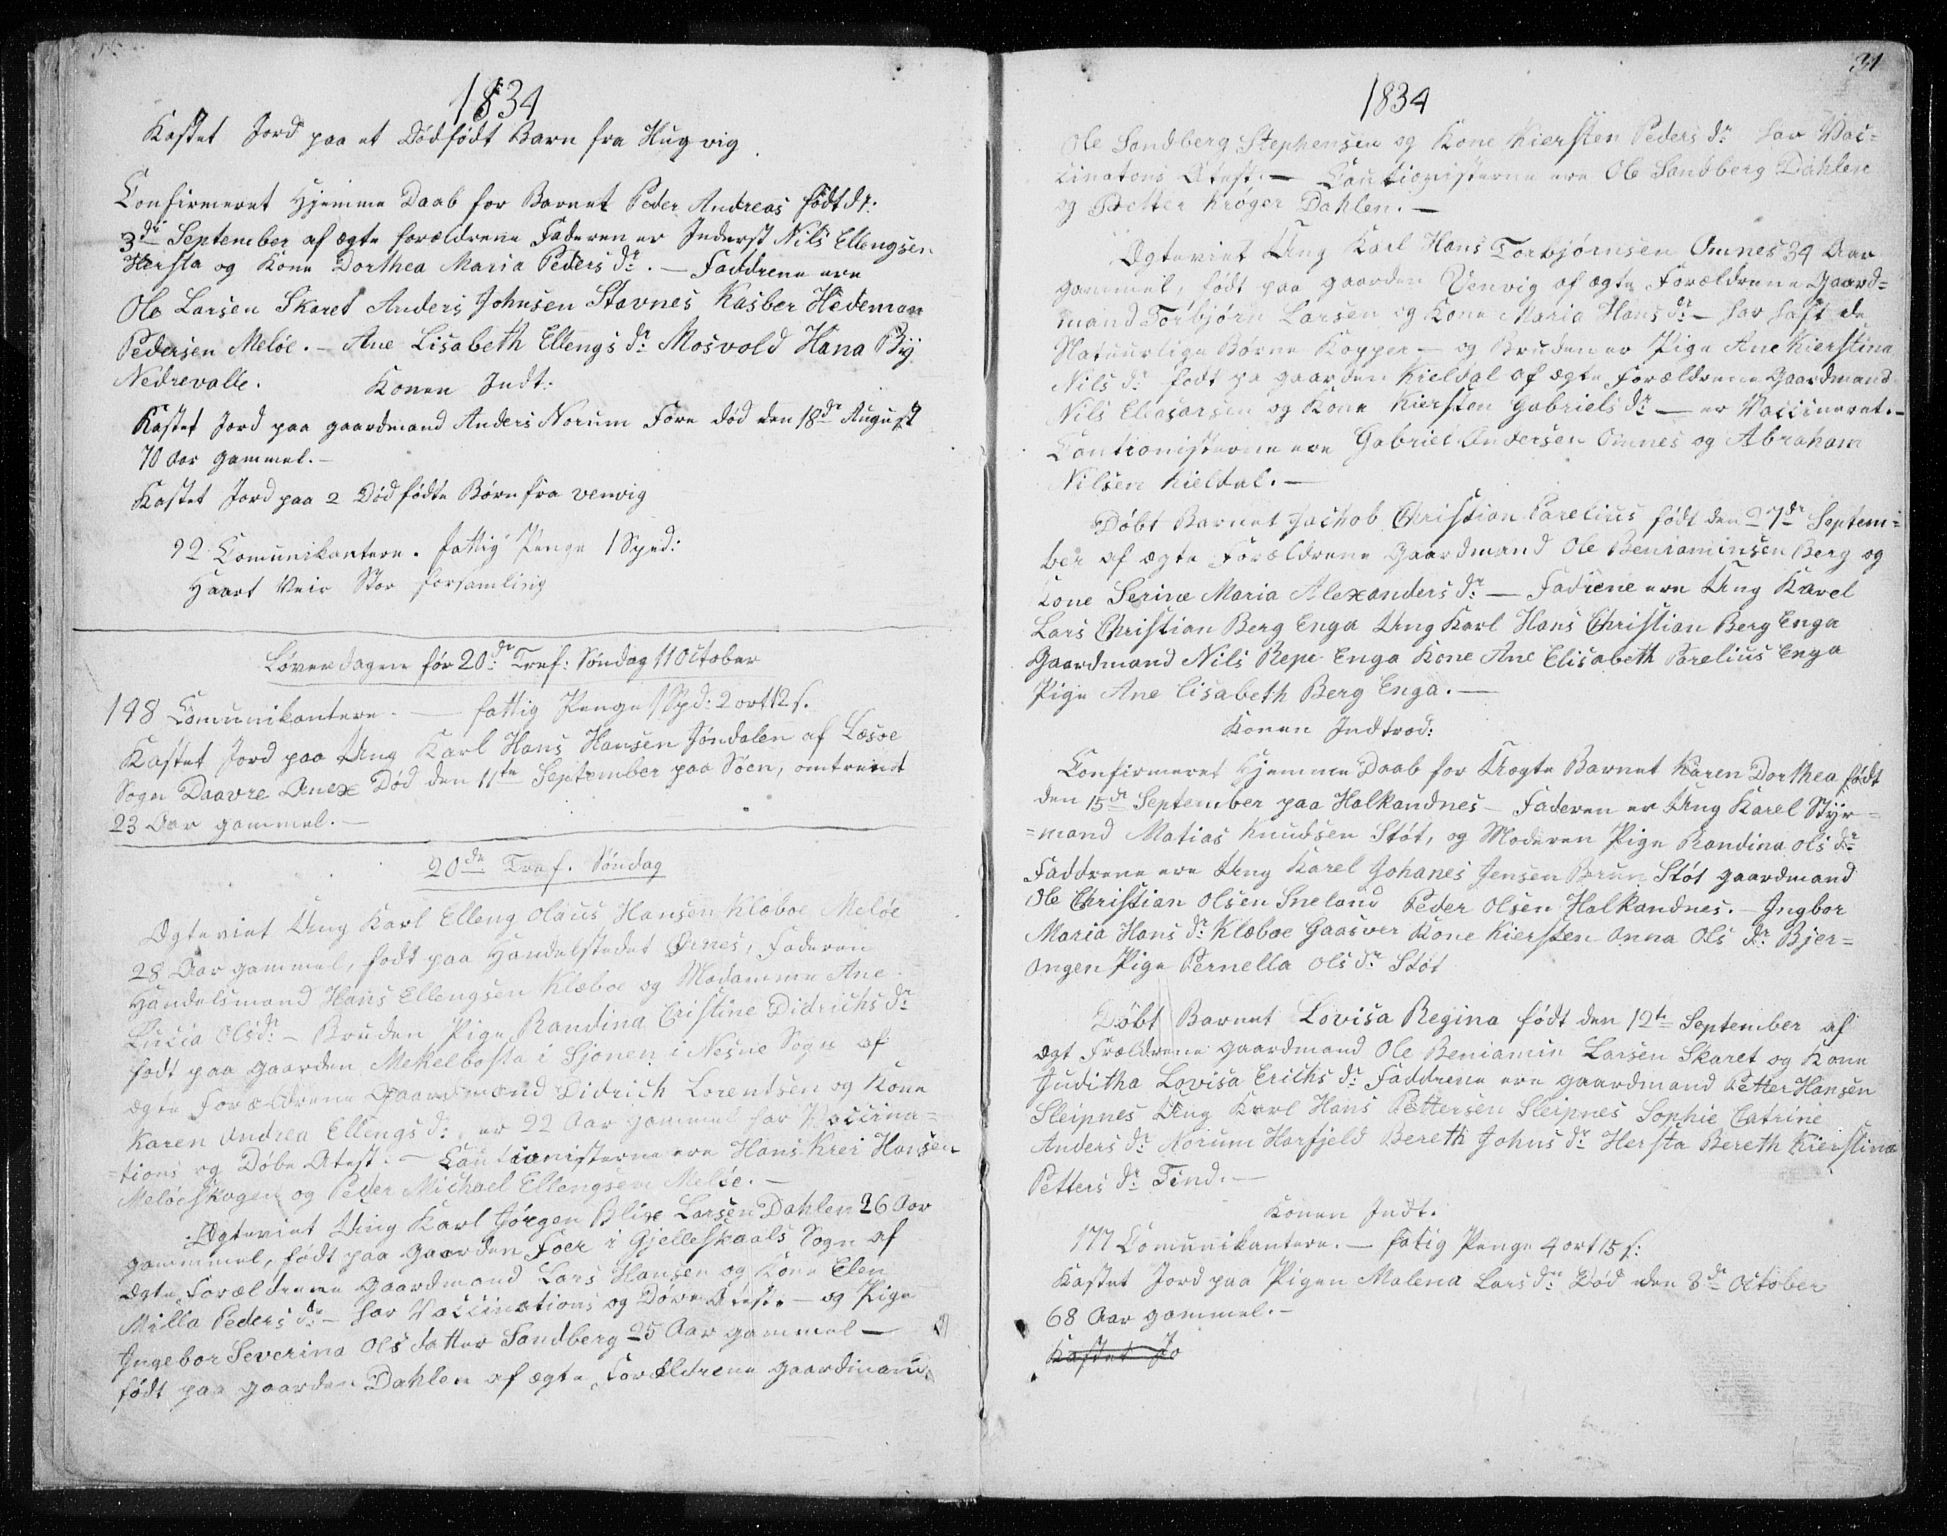 1834
Kastet Jord paa et Dödfödt Barn fra Hugvig
Confirmeret Hjemme Daab for Barnet Peder Andreas födt d:
3de September af ægte forældrene Faderen er Inderst Nils Ellengsen
Hersta og Kone Dorthea Maria Peders dr. — Faddrene ere
Ole Larsen Skaret Anders Johnsen Stavnes Kasber Hedeman
Pedersen Melöe. — Ane Lisabeth Ellengs dr Mosvold Hana By
Nedrevalle. Konen Indt:
Kastet Jord paa gaardmand Anders Norum Fore död den 18de August
70 Aar gammel. —
Kastet Jord paa 2 Dödfödte Börn fra venvig
92 Comunikantere. fattig Penge 1 Spd:
Haart Veir Stor forsamling
Löverdagen för 20de Tref: Söndag 11 October
148 Comunikantere. — fattig Penge 1 Spd: 2 ort 12 s.
Kastet Jord paa Ung Karl Hans Hansen Jöndalen af Læsöe
Sogn Daavre Anex Död den 11te September paa Söen, omtrendt
23 Aar gammel. —
20de Tref. Söndag
Ægteviet Ung Karl Elleng Olaus Hansen Klæboe Melöe
28 Aar gammel, födt paa Handelstedet Örnes, Faderen
Handelsmand Hans Ellengsen Klæboe og Madamme Ane
Lucia Olsdr: — Bruden Pige Randina Cristine Didrichs dr
födt paa gaarden Mekelbosta i Sjonen i Nesne Sogn af
ægte Forældrene Gaardmand Didrich Lorentsen og Kone
Karen Andrea Ellengs dr, er 22 Aar gammel har Vaccina=
=tions og Döbe Atest. — Cautionisterne ere Hans Krei Hansen
Melöeskogen og Peder Michael Ellengsen Melöe. —
Ægteviet Ung Karl Jörgen Blix Larsen Dahlen 26 Aar
gammel, födt paa Gaarden Foer i Gjelleskaals Sogn af
ægte Forældrene gaardmand Lars Hansen og Kone Elen
Milla Peders dr — har Vaccinations og Döbe Atest — og Pige
Ingebor Severina Ols datter Sandberg 25 Aar gammel —
födt paa gaarden Dahlen af ægte Forældrene gaardmand
31
1834
Ole Sandberg Stephensen og Kone Kiersten Peders dr har Vac=
cinatons Atest. — Cautionisterne ere Ole Sandberg Dahlen
og Petter Kröger Dahlen. —
Ægteviet Ung Karl Hans Torbjörnsen Omnes 34 Aar
gammel, födt paa gaarden Venvig af ægte Forældrene Gaard=
mand Torbjörn Larsen og Kone Maria Hans dr — har haft de
Natuurlige Börne Kopper — og Bruden er Pige Ane Kierstina
Nils dr födt pa gaarden Kieldal af ægte Forældrene Gaardmand
Nils Eliasarsen og Kone Kiersten Gabriels dr — er Vaccineret. —
Cautionisterne ere Gabriel Andersen Omnes og Abraham
Nilsen Kieldal. —
Döbt Barnet Jachob Christian Parelius födt den 27de Septem=
ber af ægte Forældrene Gaardmand Ole Beniaminsen Berg og
Kone Serine Maria Alexanders dr — Fadrene ere Ung Karel
Lars Christian Berg Enga Ung Karl Hans Christian Berg Enga
Gaardmand Nils Repe Enga Kone Ane Elisabeth Parelius Enga
Pige Ane Lisabeth Berg Enga. —
Konen Indtrod:
Confirmeret Hjemme Daab for Uægte Barnet Karen Dorthea födt
den 15de September paa Halkandnes — Faderen er Ung Karel Styr=
=mand Matias Knudsen Stöt, og Moderen Pige Randina Ols dr
Faddrene ere Ung Karel Johanes Jensen Brun Stöt gaardmand
Ole Christian Olsen Sneland Peder Olsen Halkandnes. — Ingbor
Maria Hans dr Klæboe Gaasver Kone Kiersten Anna Ols dr Bjer=
angen Pige Pernella Ols dr Stöt
Döbt Barnet Lovisa Regina födt den 12te September af
ægt Frældrene gaardmand Ole Beniamin Larsen Skaret og Kone
Juditha Lovisa Erichs dr Faddrene ere gaardmand Petter Hansen
Sleipnes Ung Karl Hans Pettersen Sleipnes Sophie Catrine
Anders dr Norum Harfjeld Bereth Johns dr Hersta Bereth Kierstina
Petters dr Tind. —
Konen Indt.
177 Comunikantere. — fatig Penge 4 ort 15 s:
Kastet Jord paa Pigen Malena Lars dr Död den 8de October
68 Aar gammel. —
Kastet Jo